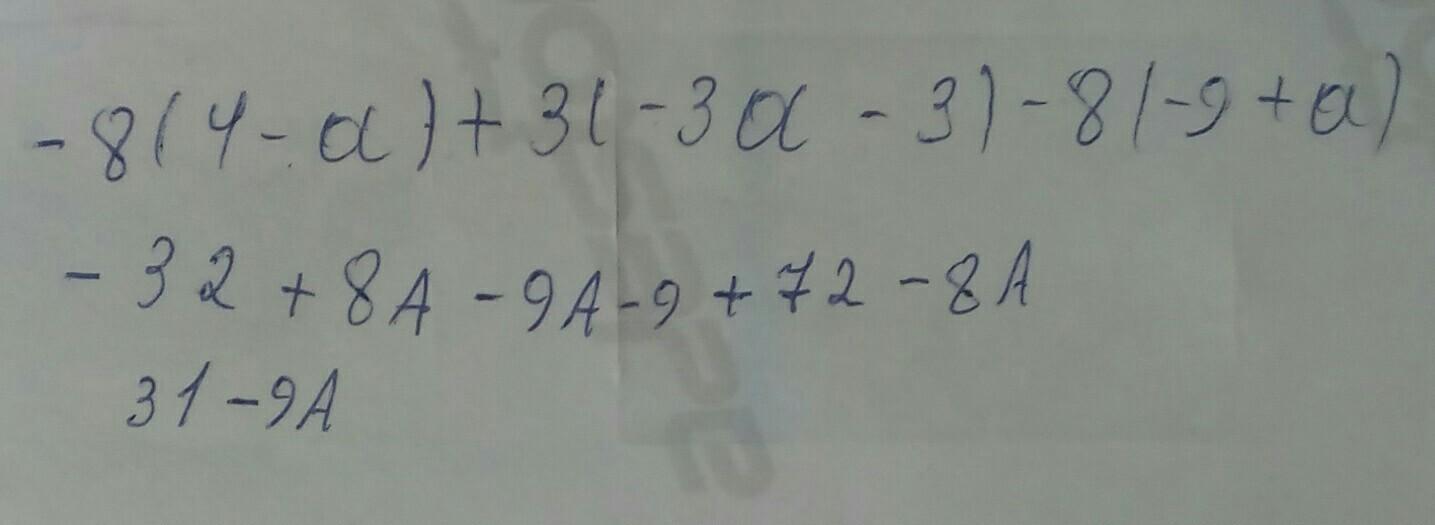 -8(4-a)+3(-3a-3)-8(-9+a)
-32+8A-9A-9+72-8A
31-9A